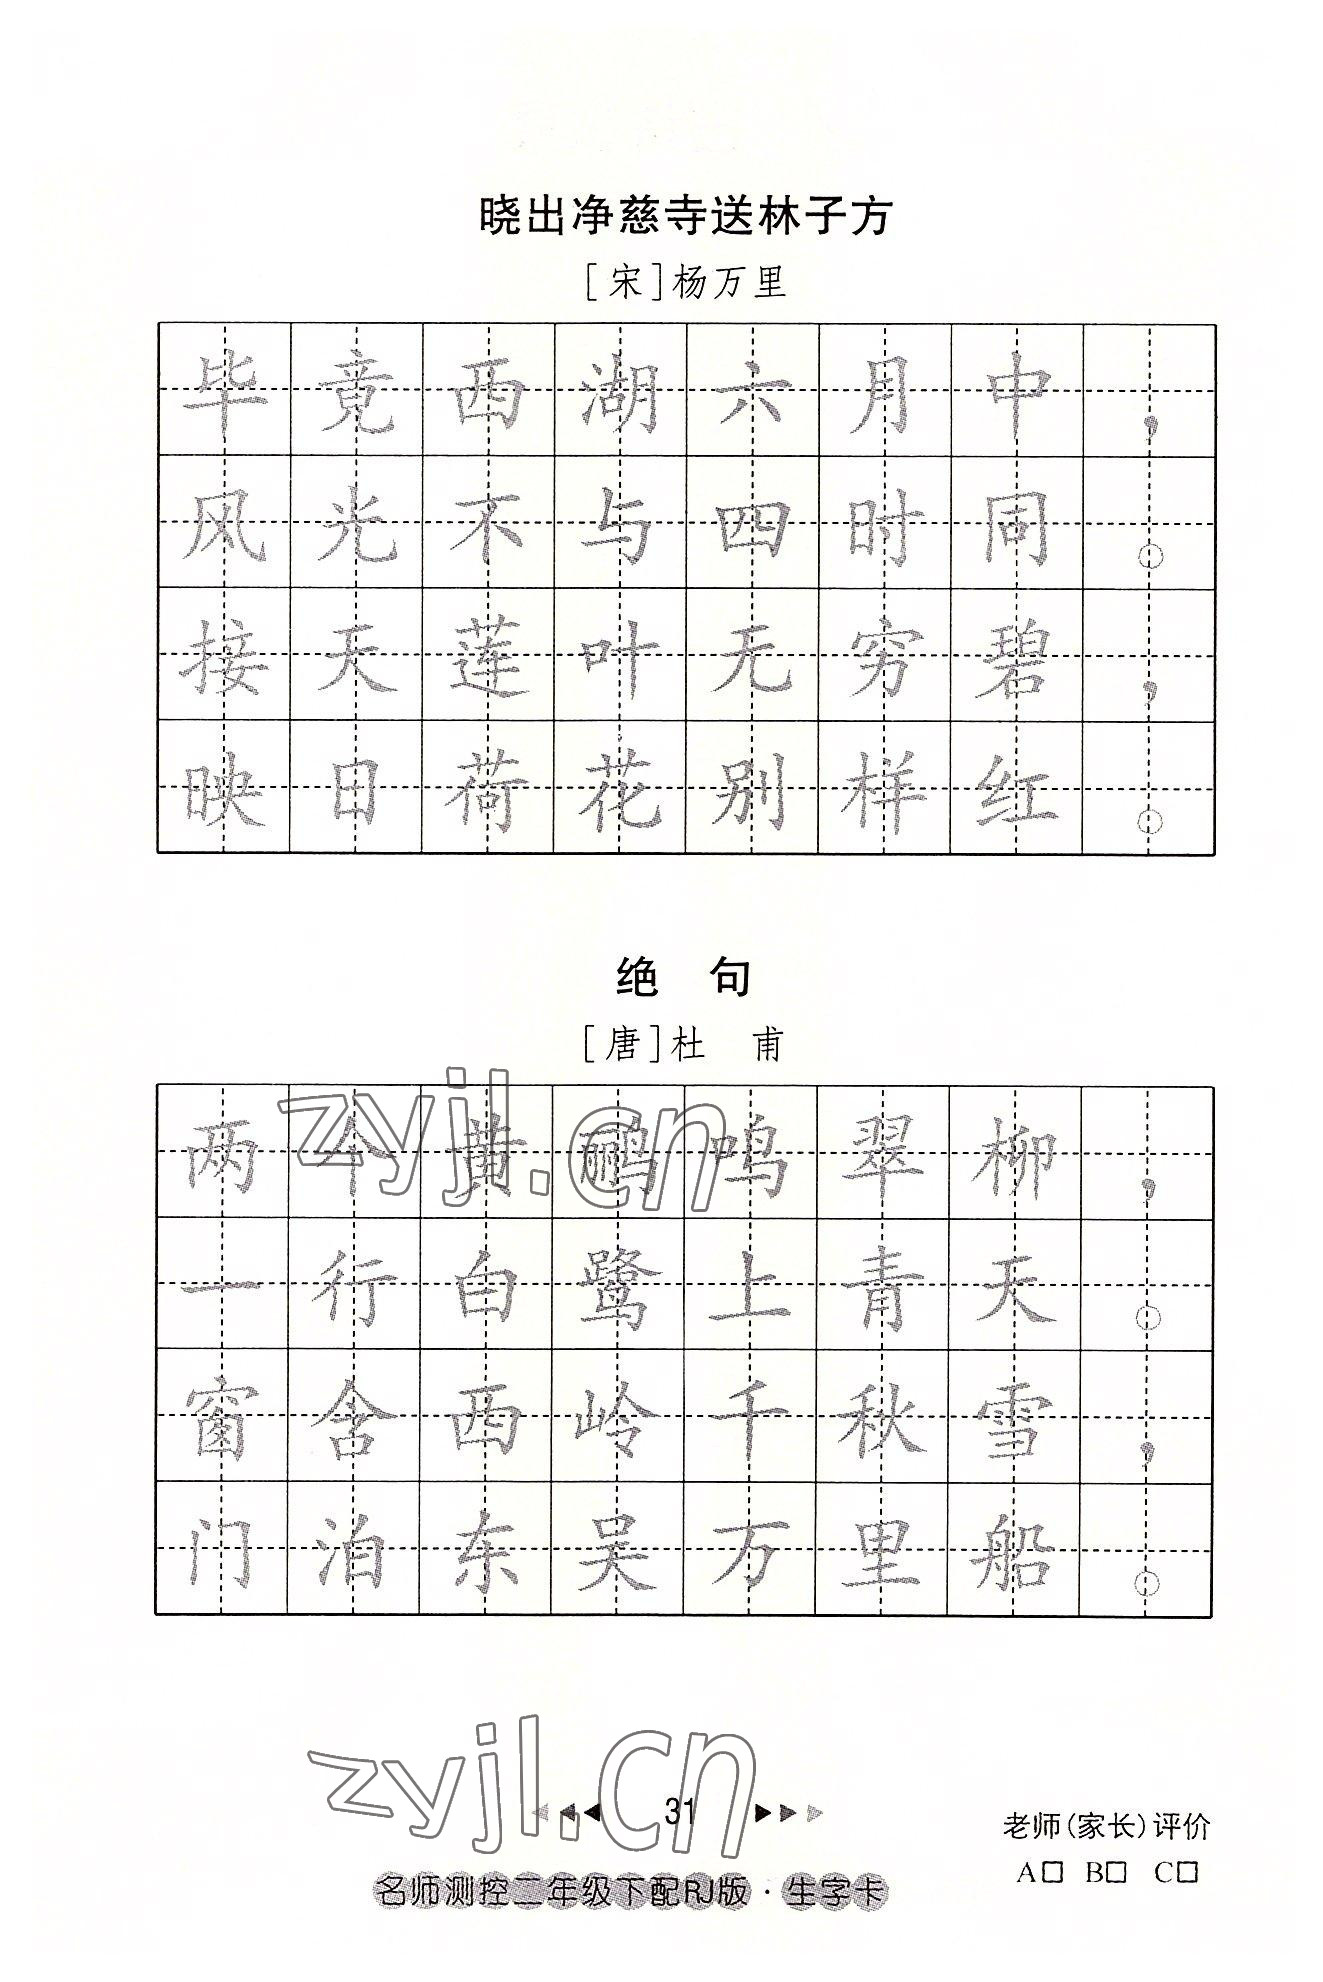 晓出净慈寺送林子方
[宋]杨万里
毕竟西湖六月中，
风光不与四时同。
接天莲叶无穷碧，
映日荷花别样红。
绝 句
[唐]杜 甫
两个黄鹂鸣翠柳，
一行白鹭上青天。
窗含西岭千秋雪，
门泊东吴万里船。
zyjl.cn
zyjl.cn
31
老师(家长)评价
A□ B□ C□
名师测控二年级下配RJ版·生字卡